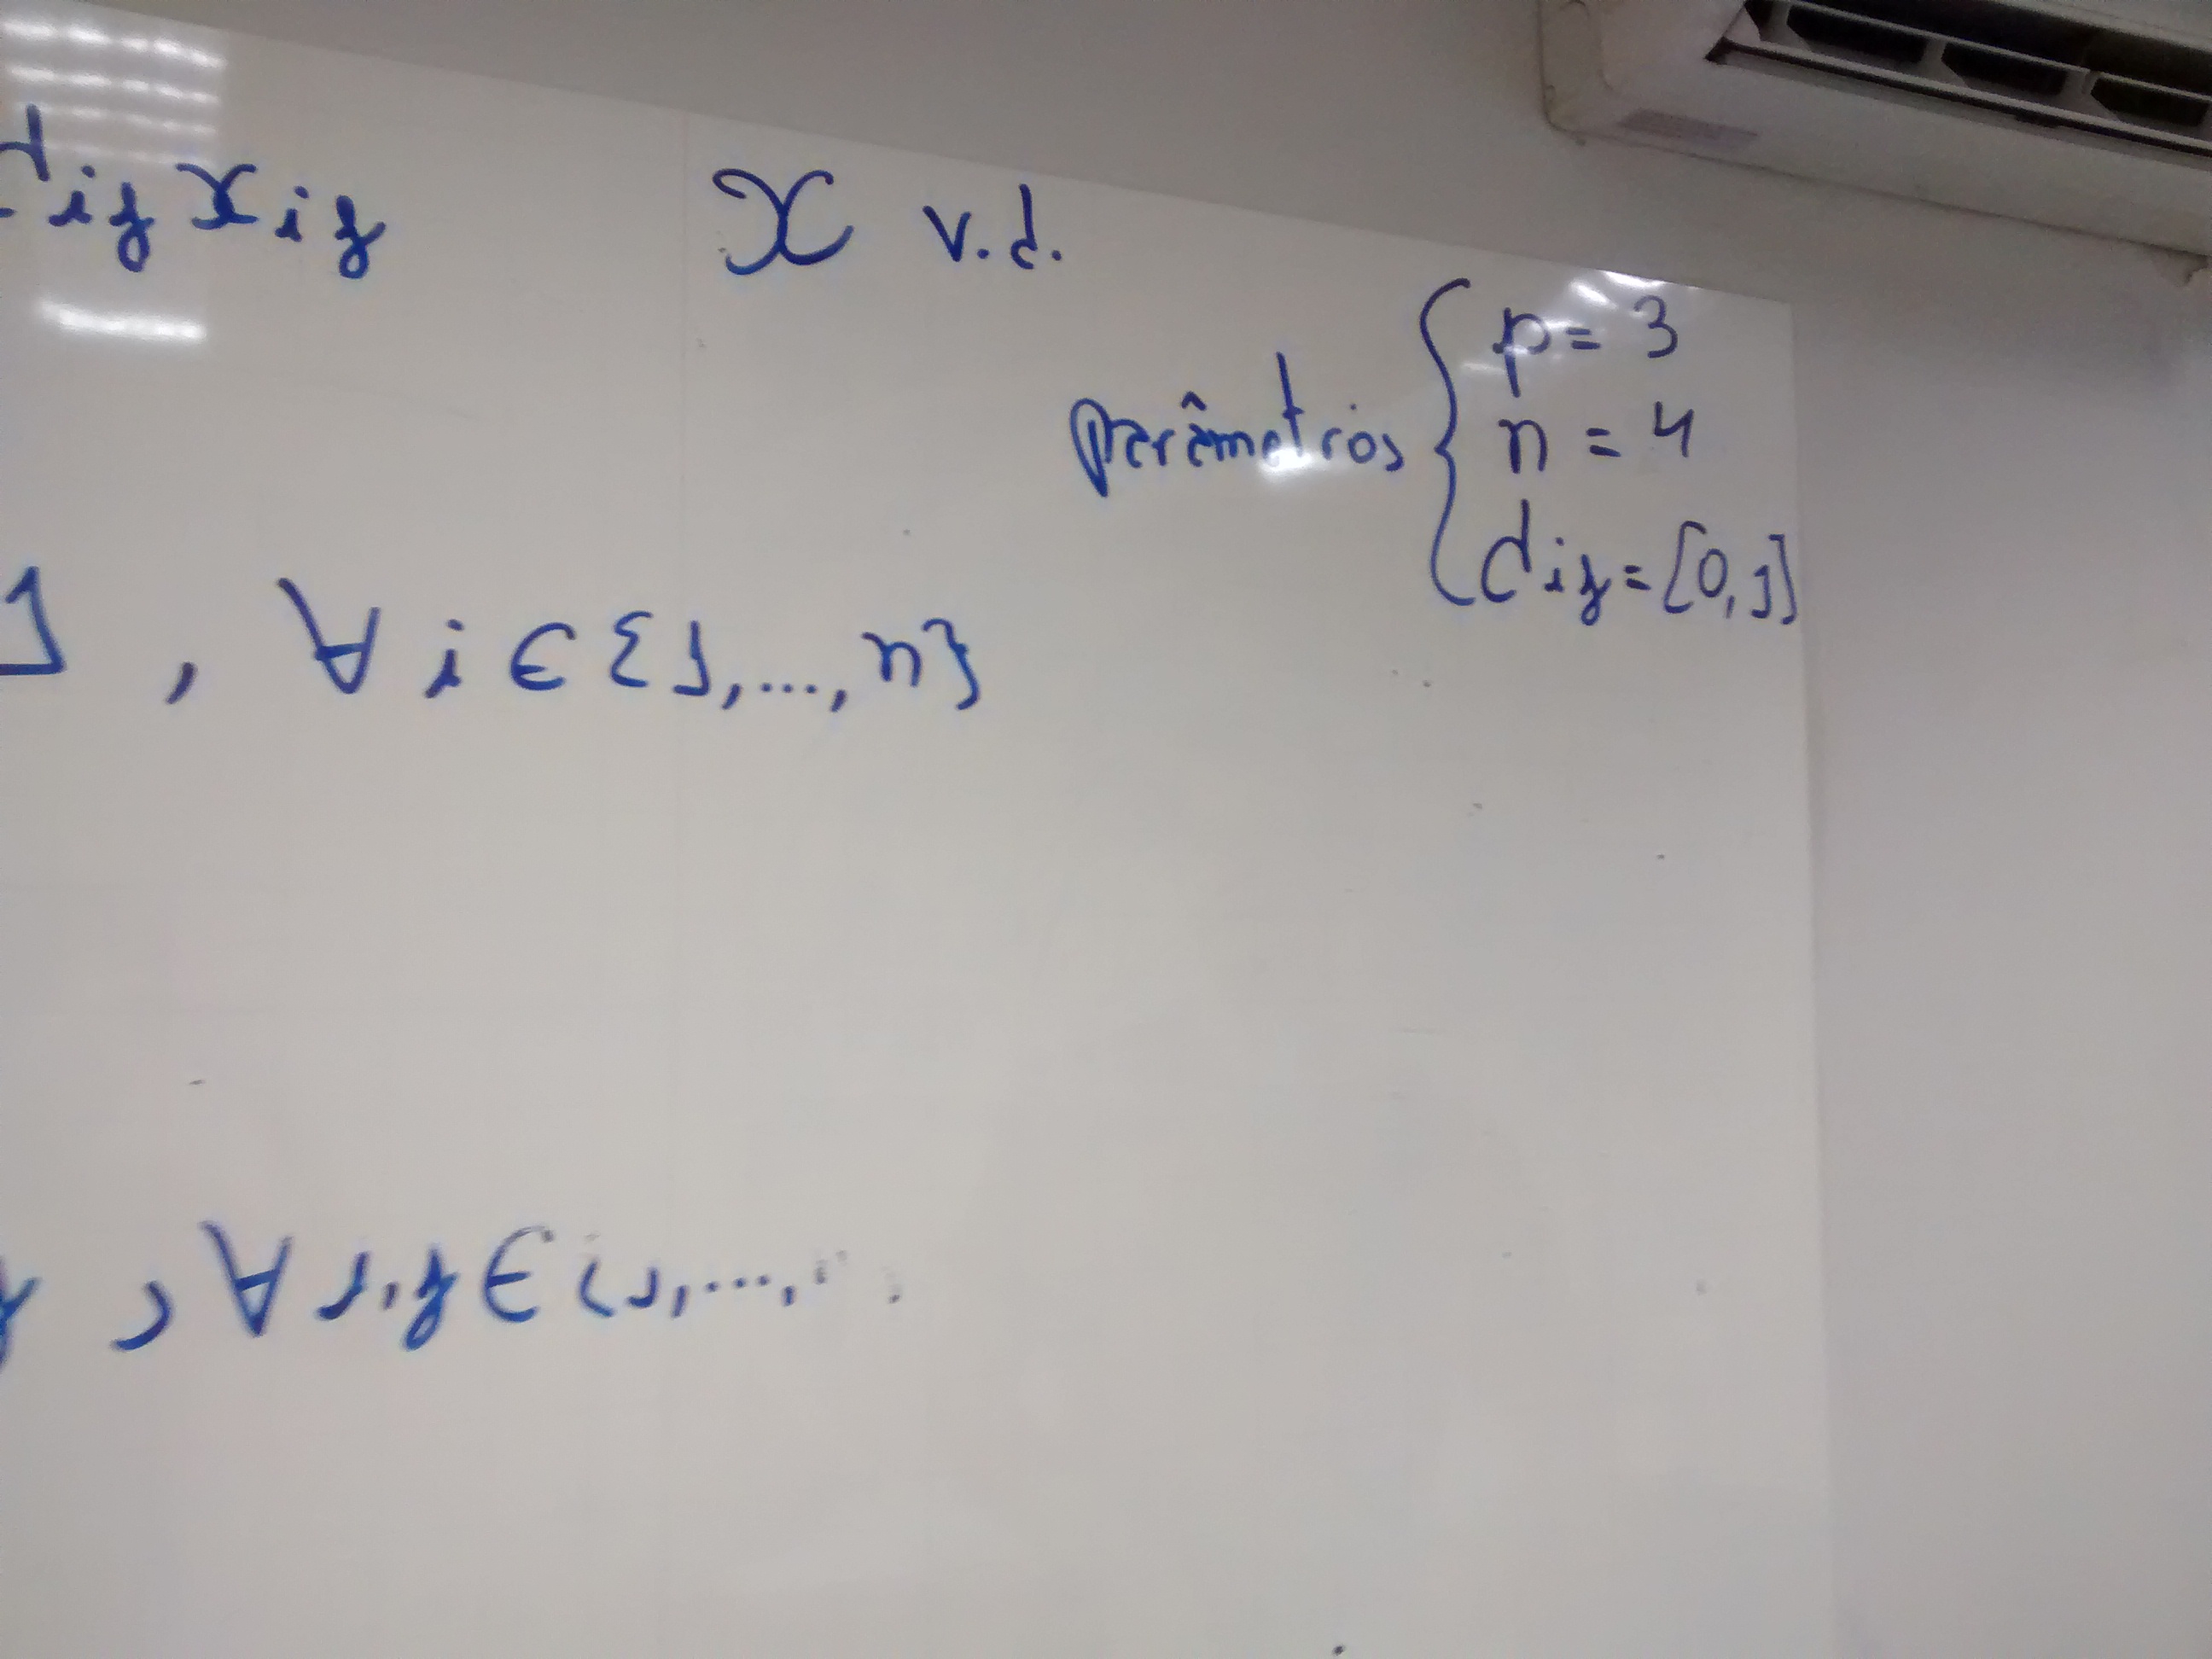 d_ij x_ij
x v.d.
parâmetros { p = 3
n = 4
d_ij = [0,1]
1 , ∀ i ∈ {1,...,n}
, ∀ i,j ∈ {1,...,